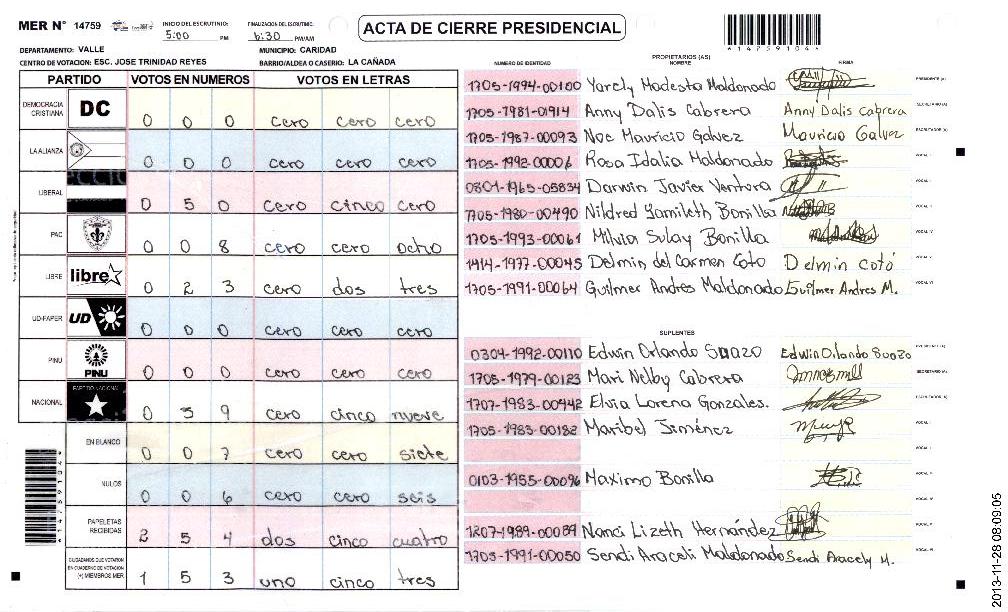 MER Nº 14759
INICIO DEL ESCRUTINIO: 5:00 PM
FINALIZACION DEL ESCRUTINIO: 6:30 PM/AM
ACTA DE CIERRE PRESIDENCIAL
*14759104*
DEPARTAMENTO: VALLE
MUNICIPIO: CARIDAD
CENTRO DE VOTACION: ESC. JOSE TRINIDAD REYES
BARRIO/ALDEA O CASERIO: LA CAÑADA
PARTIDO VOTOS EN NUMEROS VOTOS EN LETRAS
DEMOCRACIA CRISTIANA DC 0 0 0 cero cero cero
LA ALIANZA 0 0 0 cero cero cero
LIBERAL 0 5 0 cero cinco cero
PAC 0 0 8 cero cero ocho
LIBRE libre 0 2 3 cero dos tres
UD-FAPER UD 0 0 0 cero cero cero
PINU PINU 0 0 0 cero cero cero
NACIONAL PARTIDO NACIONAL 0 5 9 cero cinco nueve
EN BLANCO 0 0 7 cero cero siete
NULOS 0 0 6 cero cero seis
PAPELETAS RECIBIDAS 2 5 4 dos cinco cuatro
CIUDADANOS QUE VOTARON EN CUADERNO DE VOTACION (+) MIEMBROS MER 1 5 3 uno cinco tres
NUMERO DE IDENTIDAD
PROPIETARIOS (AS)
NOMBRE
FIRMA
1705-1994-00100 Yarely Modesta Maldonado PRESIDENTE (A)
1705-1981-01914 Anny Dalis Cabrera Anny Dalis Cabrera SECRETARIO (A)
1705-1987-00093 Noe Mauricio Galvez Mauricio Galvez ESCRUTADOR (A)
1705-1992-00006 Rosa Idalia Maldonado VOCAL I
0801-1965-05834 Darwin Javier Ventura VOCAL II
1705-1980-00490 Nildred Yamileth Bonilla VOCAL III
1705-1993-00061 Milvia Sulay Bonilla VOCAL IV
1414-1977-00045 Delmin del Carmen Coto Delmin Cotó VOCAL V
1705-1991-00064 Guilmer Andres Maldonado Guilmer Andres M. VOCAL VI
SUPLENTES
0304-1992-00110 Edwin Orlando Suazo Edwin Orlando Suazo PRESIDENTE (A)
1705-1979-00123 Mari Nelby Cabrera SECRETARIO (A)
1707-1983-00442 Elvia Lorena Gonzales. ESCRUTADOR (A)
1705-1983-00182 Maribel Jiménez VOCAL I
VOCAL II
0103-1955-00096 Maximo Bonilla VOCAL III
VOCAL IV
1207-1989-00089 Nanci Lizeth Hernández VOCAL V
1705-1991-00050 Sendi Araceli Maldonado Sendi Aracely M. VOCAL VI
2013-11-28 08:09:05